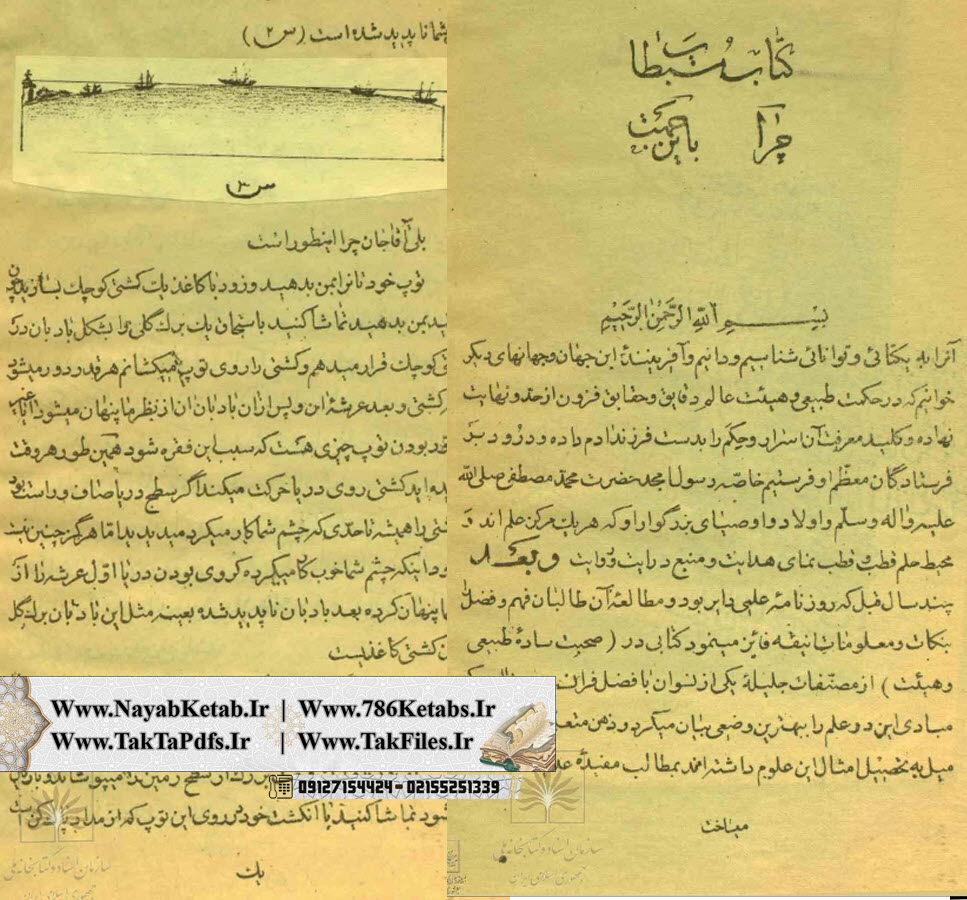 کتاب مستطاب
چرا باین جهت
بسم الله الرحمن الرحیم
آنرا به یکتائی و توانائی شناسیم و دانیم و آفرینندهٔ این جهان و جهانهای دیگر
خوانیم که در حکمت طبیعی و هیئت عالم دقایق و حقایق فزون از حد و نهایت
نهاده و کلید معرفت آن اسرار و حکم را بدست فرزند آدم داده و درود بر
فرستادگان معظم او فرستیم خاصّه رسول امجد حضرت محمد مصطفی صلی الله
علیه و آله و سلم و اولاد و اوصیای بزرگوار او که هر یک مرکز علم اند و
محیط حلم قطب و قطب نمای هدایت و منبع درایت و روایت وبعد
چند سال قبل که روزنامهٔ علمی دایر بود و مطالعهٔ آن طالبان فهم و فضل را
بنکات و معلومات نیفه فایز مینمود کتابی در (صحبت سادهٔ طبیعی
و هیئت) از مصنفات جلیلهٔ یکی از نسوان با فضل
مبادی این دو علم را ببهترین وضعی بیان میکرد و ذهن
میل به تحصیل امثال این علوم داشته اند بمطالب مفیدهٔ
مباخت
شما ناپدید شده است (س ۲)
س ۳
بلی آقاجان چرا اینطور است
توپ خودتانرا بمن بدهید و زود با کاغذ یک کشتی کوچک بسازید
بمن بدهید تماشا کنید با سنجاق یک برک گلی را بشکل بادبان در
کوچک قرار میدهم و کشتی را روی توپ میکشانم هر قدر دور میشود
کشتی و بعد عرشهٔ این و پس ازان بادبان ان از نظر ما پنهان میشود آیا غیر
بودن توپ چیزی هست که سبب این فقره شود همین طور هر وقت
اید کشتی روی دریا حرکت میکند اگر سطح دریا صاف و راست بود
را همیشه تا حدی که چشم شما کار میکرد میدیدید اما هرگز چنین نیست
اینکه چشم شما خوب کار میکرده کروی بودن دریا اول عرشه را از
پنهان کرده بعد بادبان ناپدید شده بعینه مثل این بادبان برک گل
کشتی کاغذیست
تماشا کنید با انگشت خود بر روی این توپ که از مداد
یک
Www.NayabKetab.Ir | Www.786Ketabs.Ir
Www.TakTaPdfs.Ir | Www.TakFiles.Ir
09127154424 - 02155251339
سازمان اسناد و کتابخانه ملی
جمهوری اسلامی ایران
سازمان اسناد و کتابخانه ملی
جمهوری اسلامی ایران